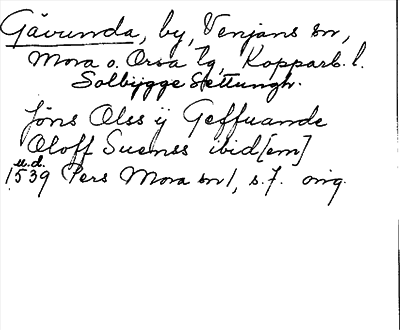 Gävunda, by, Venjans sn,
Mora o. Orsa tg, Kopparb. l.
Solbÿgge Settungh.
Jöns Olss ÿ Geffuande
Oloff Suenss ibid[em]
u.d.
1539 Pers Mora sn 1, s. 7. orig.